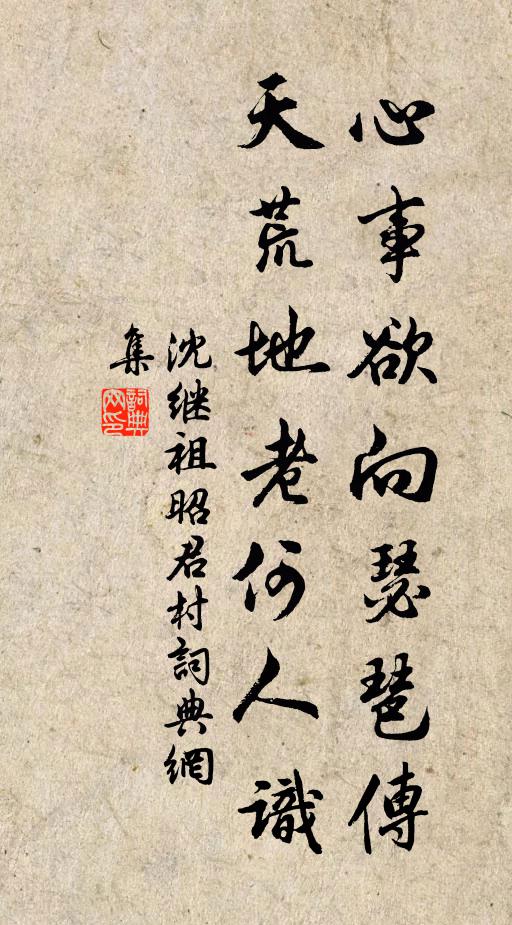 心事欲向瑟琶傳
天荒地老何人識
沈继祖昭君村詞典網
集
詞典
网印